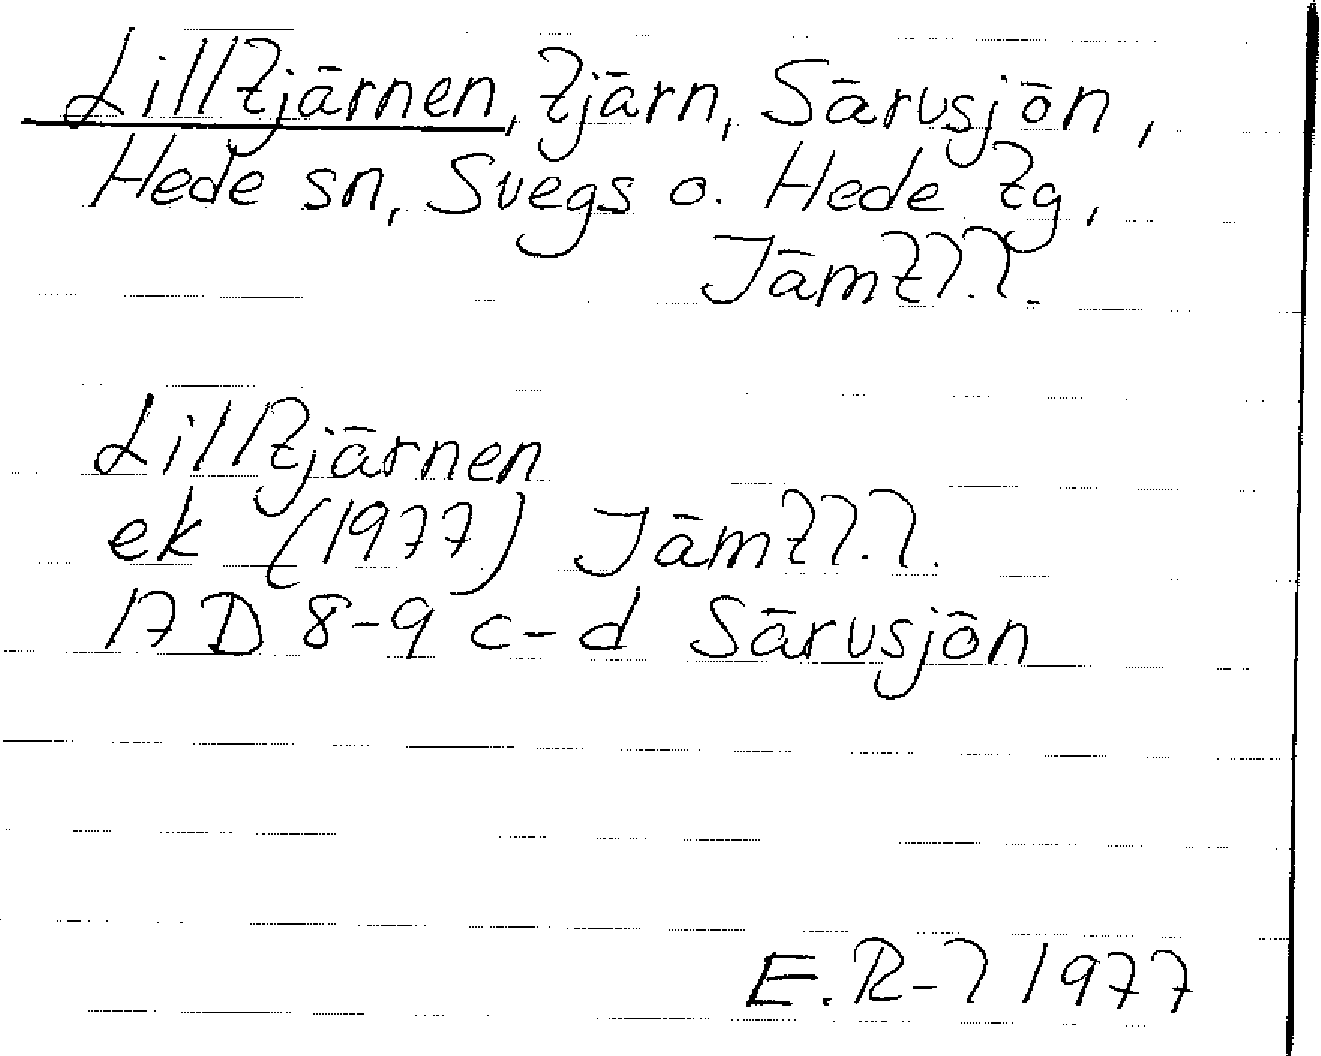 Lilltjärnen, tjärn, Särvsjön,
Hede sn, Svegs o. Hede tg,
Jämtl.l.
Lilltjärnen
ek (1977) Jämtl.l.
17D 8-9 c-d Särvsjön
E.R-l 1977